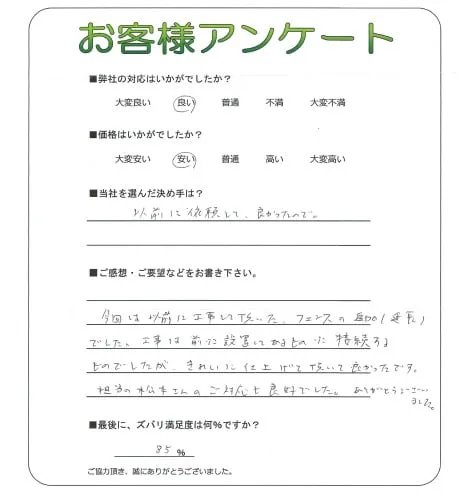 お客様アンケート
■弊社の対応はいかがでしたか？
大変良い 良い 普通 不満 大変不満
■価格はいかがでしたか？
大変安い 安い 普通 高い 大変高い
■当社を選んだ決め手は？
以前に依頼して、良かったので。
■ご感想・ご要望などをお書き下さい。
今回は以前に工事して頂いた、フェンスの追加(延長)
でした。工事は前に設置してあるものに接続する
ものでしたが、きれいに仕上げて頂いて良かったです。
担当の松本さんのご対応も良好でした。ありがとうござい
ました。
■最後に、ズバリ満足度は何%ですか？
85 %
ご協力頂き、誠にありがとうございました。